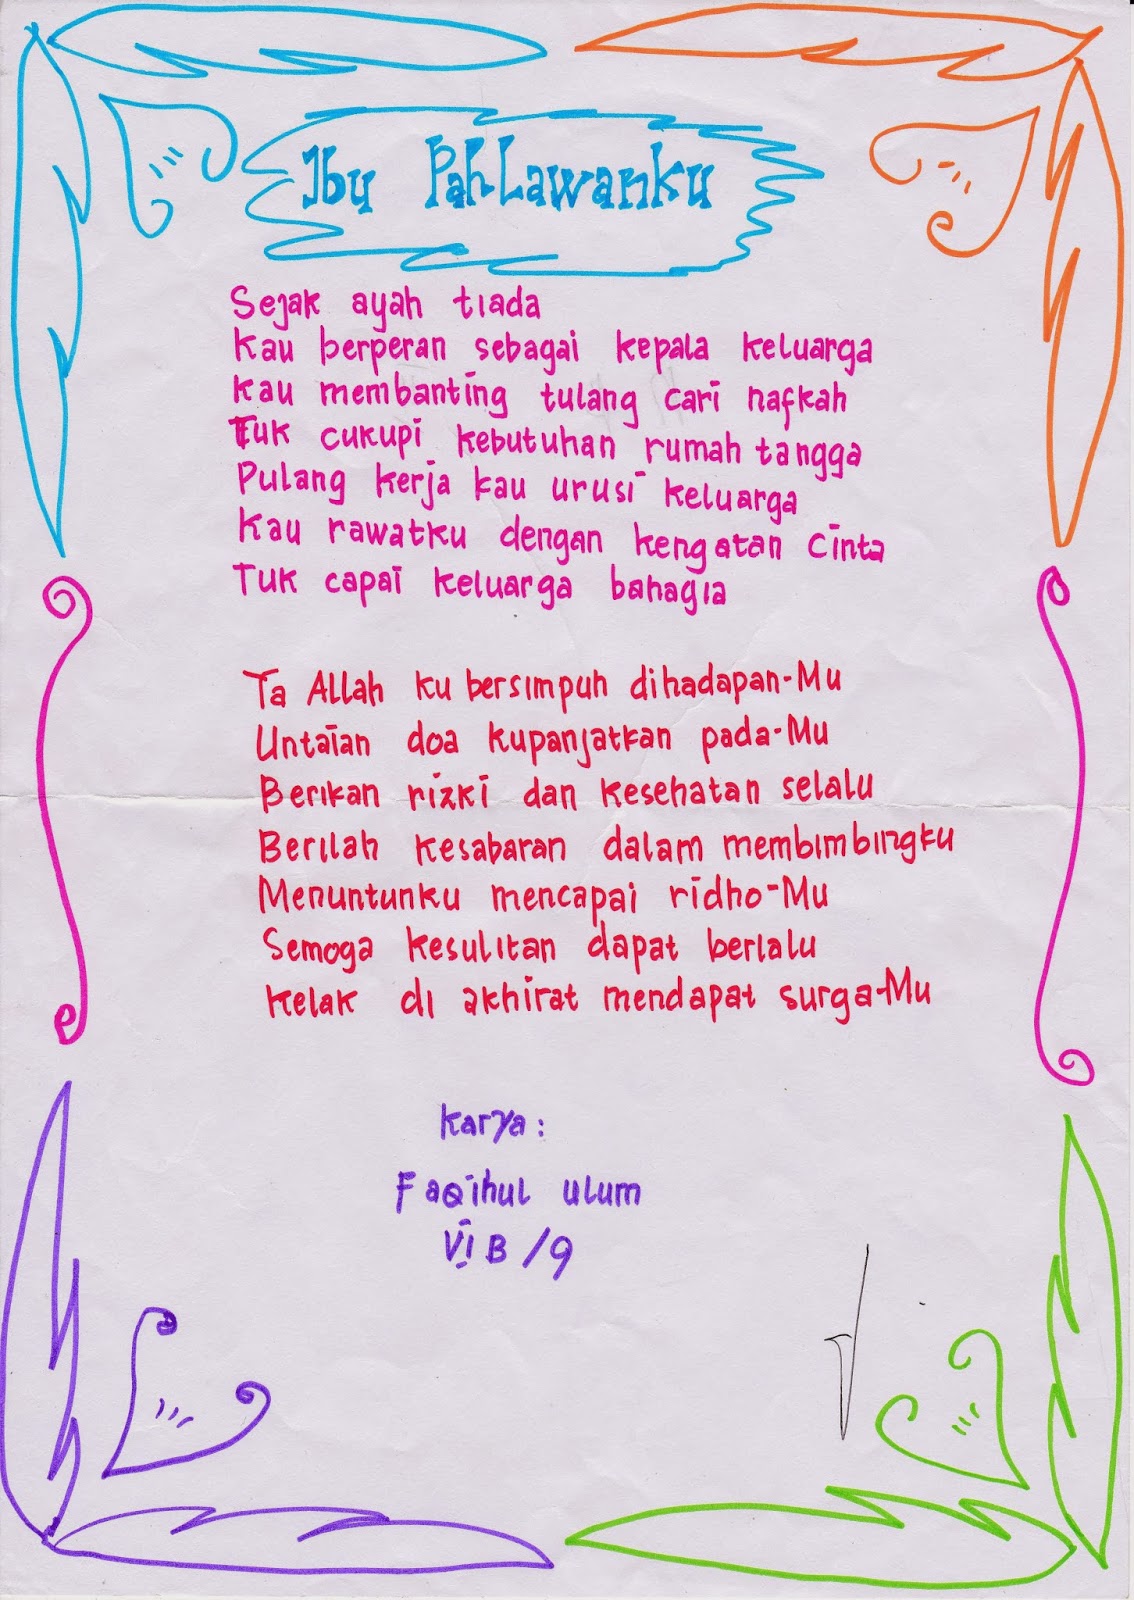 Ibu Pahlawanku
Sejak ayah tiada
Kau berperan sebagai kepala keluarga
Kau membanting tulang cari nafkah
Tuk cukupi kebutuhan rumah tangga
Pulang kerja kau urusi keluarga
Kau rawatku dengan kengatan cinta
Tuk capai keluarga bahagia
Ya Allah ku bersimpuh dihadapan-Mu
Untaian doa kupanjatkan pada-Mu
Berikan rizki dan kesehatan selalu
Berilah kesabaran dalam membimbingku
Menuntunku mencapai ridho-Mu
Semoga kesulitan dapat berlalu
Kelak di akhirat mendapat surga-Mu
Karya:
Faqihul ulum
VI B /9